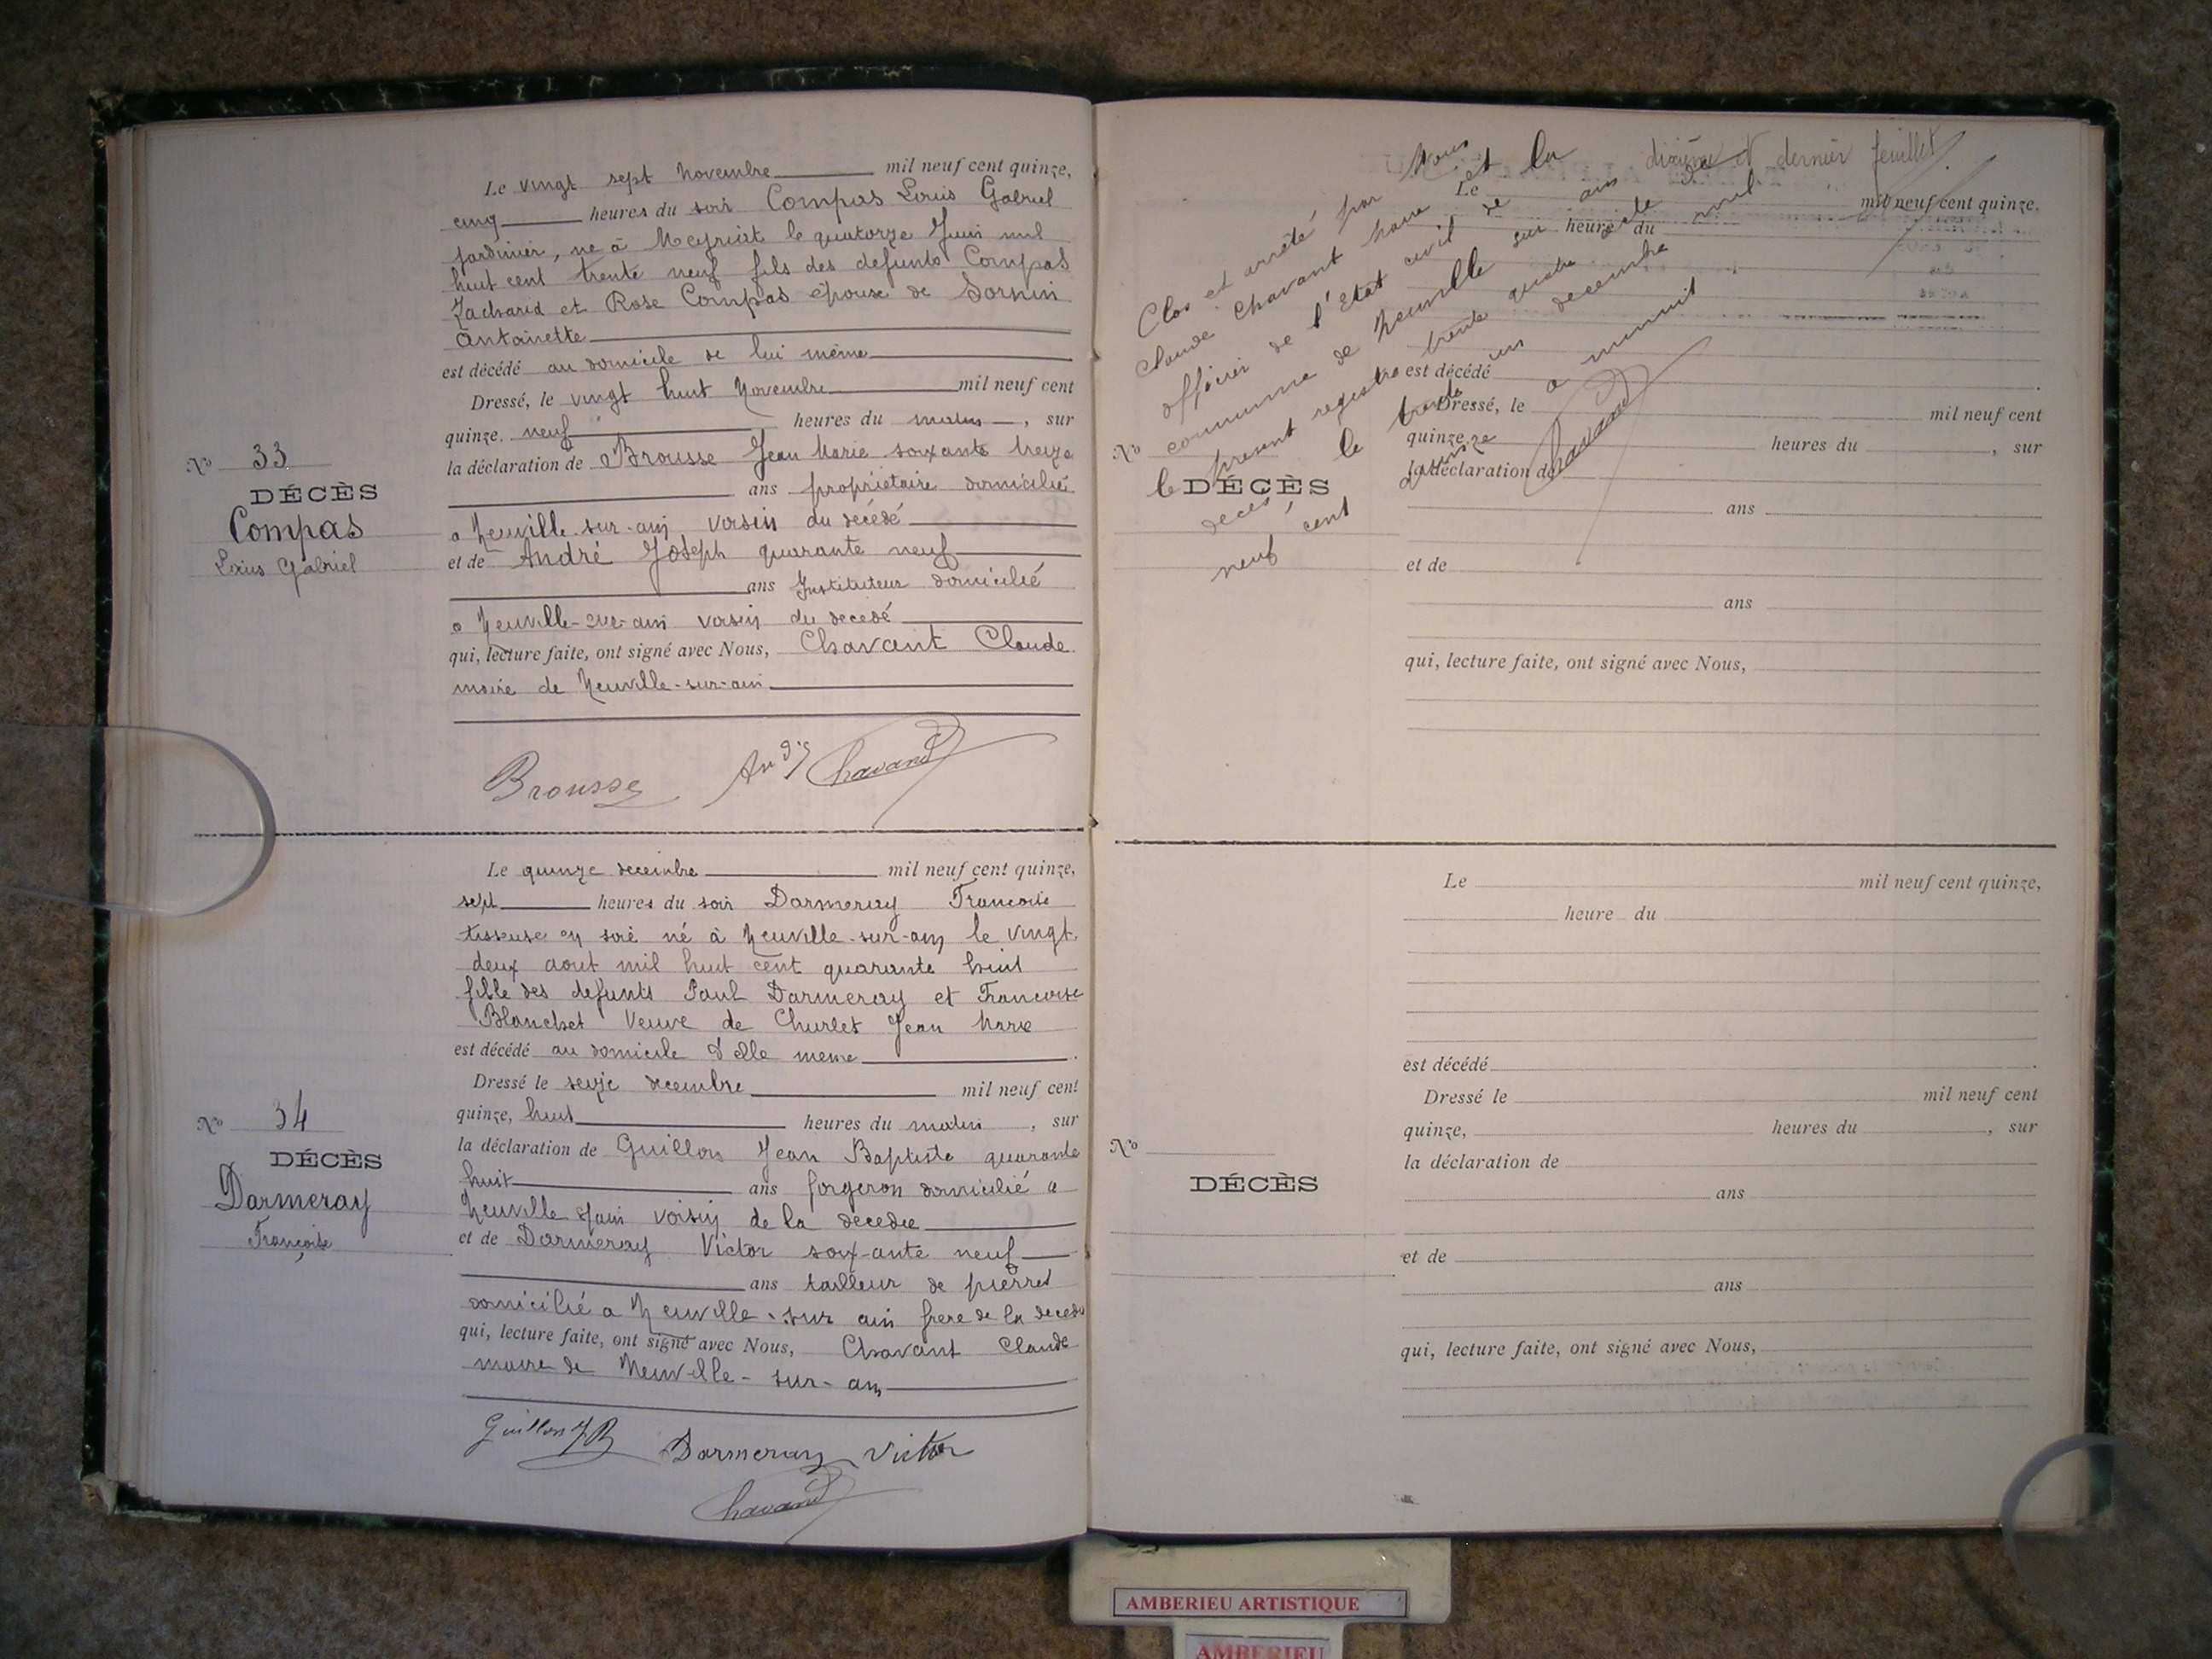 Le vingt sept Novembre mil neuf cent quinze,
cinq heures du soir Compas Louis Gabriel
jardinier, né à Meyriat le quatorze Juin mil
huit cent trente neuf fils des defunts Compas
Zacharid et Rose Compas épouse de Sornin
Antoinette
est décédé au domicile de lui même
Dressé, le vingt huit Novembre mil neuf cent
quinze. neuf heures du matin, sur
No 33
la déclaration de Brousse Jean Marie soixante treize
ans propriétaire domicilié
DÉCÈS
Compas
Louis Gabriel
a Neuville-sur-ain voisin du décédé
et de André Joseph quarante neuf
ans Instituteur domicilié
a Neuville-sur-ain voisin du decedé
qui, lecture faite, ont signé avec Nous, Chavant Claude
maire de Neuville-sur-ain
Brousse André Chavant
Le quinze decembre mil neuf cent quinze,
sept heures du soir Darmeray Francoise
tisseuse en soie né à Neuville-sur-ain le vingt
deux aout mil huit cent quarante huit
fille des defunts Paul Darmeray et Francoise
Blanchet Veuve de Churlet Jean Marie
est décédé au domicile d'elle meme
Dressé le seize decembre mil neuf cent
quinze, huit heures du matin, sur
No 34
la déclaration de Guillon Jean Baptiste quarante
huit ans forgeron domicilié a
DÉCÈS
Darmeray
Françoise
Neuville s/ain voisin de la decedee
et de Darmeray Victor soix-ante neuf
ans tailleur de pierres
domicilié a Neuville-sur ain frere de la decedé
qui, lecture faite, ont signé avec Nous, Chavant Claude
maire de Neuville-sur-ain
Guillon J B Darmeray Victor
Chavant
dixième et dernier feuillet
Clos et arrêté par Nous
Claude Chavant maire et
officier de l'Etat civil de la
commune de Neuville sur ain
le present registre trente quatre
decés, le trente un decembre mil
neuf cent quinze a minuit
Chavant
Le mil neuf cent quinze.
heure du
est décédé
Dressé, le mil neuf cent
quinze heures du , sur
No
la déclaration de
DÉCÈS
ans
et de
ans
qui, lecture faite, ont signé avec Nous,
Le mil neuf cent quinze,
heure du
est décédé
Dressé le mil neuf cent
quinze, heures du , sur
No
la déclaration de
DÉCÈS
ans
et de
ans
qui, lecture faite, ont signé avec Nous,
AMBERIEU ARTISTIQUE
AMBERIEU